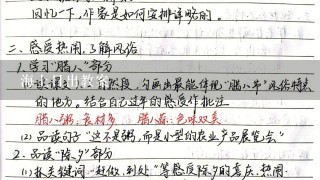 回忆一下,作家是如何安排详略的。
二、感受热闹,了解风俗
1.学习"腊八"部分
自然段,勾画出最能体现"腊八节"风俗特点
的地方。结合自己过年的感受作批注
腊八粥:食材多 腊八蒜:色味双美
(2)品读句子"这不是粥,而是小型的农业产品展览会"
2.品读"除夕"部分
(1)抓关键词"赶做,到处"等感底除夕的喜庆、热闹.